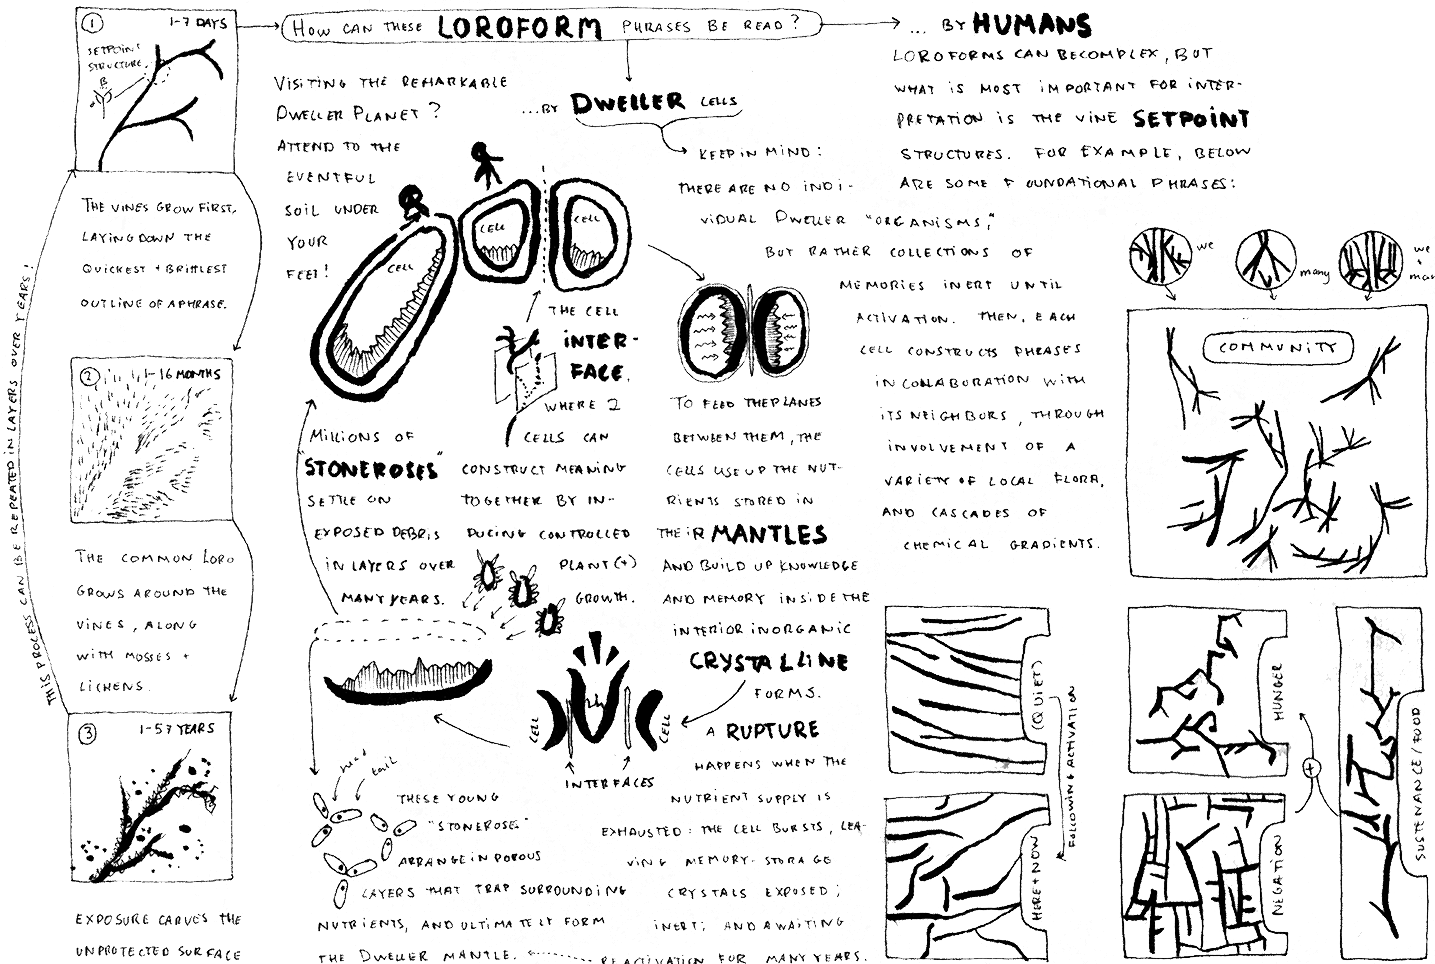 1
1-7 DAYS
SETPOINT
STRUCTURE.
B
THE VINES GROW FIRST,
LAYING DOWN THE
QUICKEST + BRITTLEST
OUTLINE OF A PHRASE.
2
1-16 MONTHS
THE COMMON LORO
GROWS AROUND THE
VINES, ALONG
WITH MOSSES +
LICHENS.
3
1-57 YEARS
EXPOSURE CARVES THE
UNPROTECTED SURFACE
THIS PROCESS CAN BE REPEATED IN LAYERS OVER YEARS!
HOW CAN THESE LOROFORM PHRASES BE READ?
VISITING THE REMARKABLE
DWELLER PLANET?
ATTEND TO THE
EVENTFUL
SOIL UNDER
YOUR
FEET!
CELL
CELL
CELL
...BY DWELLER CELLS
KEEP IN MIND:
THERE ARE NO INDI-
VIDUAL DWELLER "ORGANISMS,"
BUT RATHER COLLECTIONS OF
MEMORIES INERT UNTIL
ACTIVATION. THEN, EACH
CELL CONSTRUCTS PHRASES
IN COLLABORATION WITH
ITS NEIGHBORS, THROUGH
INVOLVEMENT OF A
VARIETY OF LOCAL FLORA,
AND CASCADES OF
CHEMICAL GRADIENTS.
THE CELL
INTER-
FACE,
WHERE 2
CELLS CAN
CONSTRUCT MEANING
TOGETHER BY IN-
DUCING CONTROLLED
PLANT(+)
GROWTH.
TO FEED THE PLANES
BETWEEN THEM, THE
CELLS USE UP THE NUT-
RIENTS STORED IN
THEIR MANTLES
AND BUILD UP KNOWLEDGE
AND MEMORY INSIDE THE
INTERIOR INORGANIC
CRYSTALLINE
FORMS.
A RUPTURE
HAPPENS WHEN THE
NUTRIENT SUPPLY IS
EXHAUSTED: THE CELL BURSTS, LEA-
VING MEMORY-STORAGE
CRYSTALS EXPOSED;
INERT; AND AWAITING
REACTIVATION FOR MANY YEARS.
CELL
CELL
INTERFACES
MILLIONS OF
"STONEROSES"
SETTLE ON
EXPOSED DEBRIS
IN LAYERS OVER
MANY YEARS.
head
tail
THESE YOUNG
"STONEROSE"
ARRANGE IN POROUS
LAYERS THAT TRAP SURROUNDING
NUTRIENTS, AND ULTIMATELY FORM
THE DWELLER MANTLE.
... BY HUMANS
LOROFORMS CAN BE COMPLEX, BUT
WHAT IS MOST IMPORTANT FOR INTER-
PRETATION IS THE VINE SETPOINT
STRUCTURES. FOR EXAMPLE, BELOW
ARE SOME FOUNDATIONAL PHRASES:
we
many
we
+
COMMUNITY
(QUIET)
FOLLOWING ACTIVATION
HERE + NOW
HUNGER
+
NEGATION
SUSTENANCE / FOOD